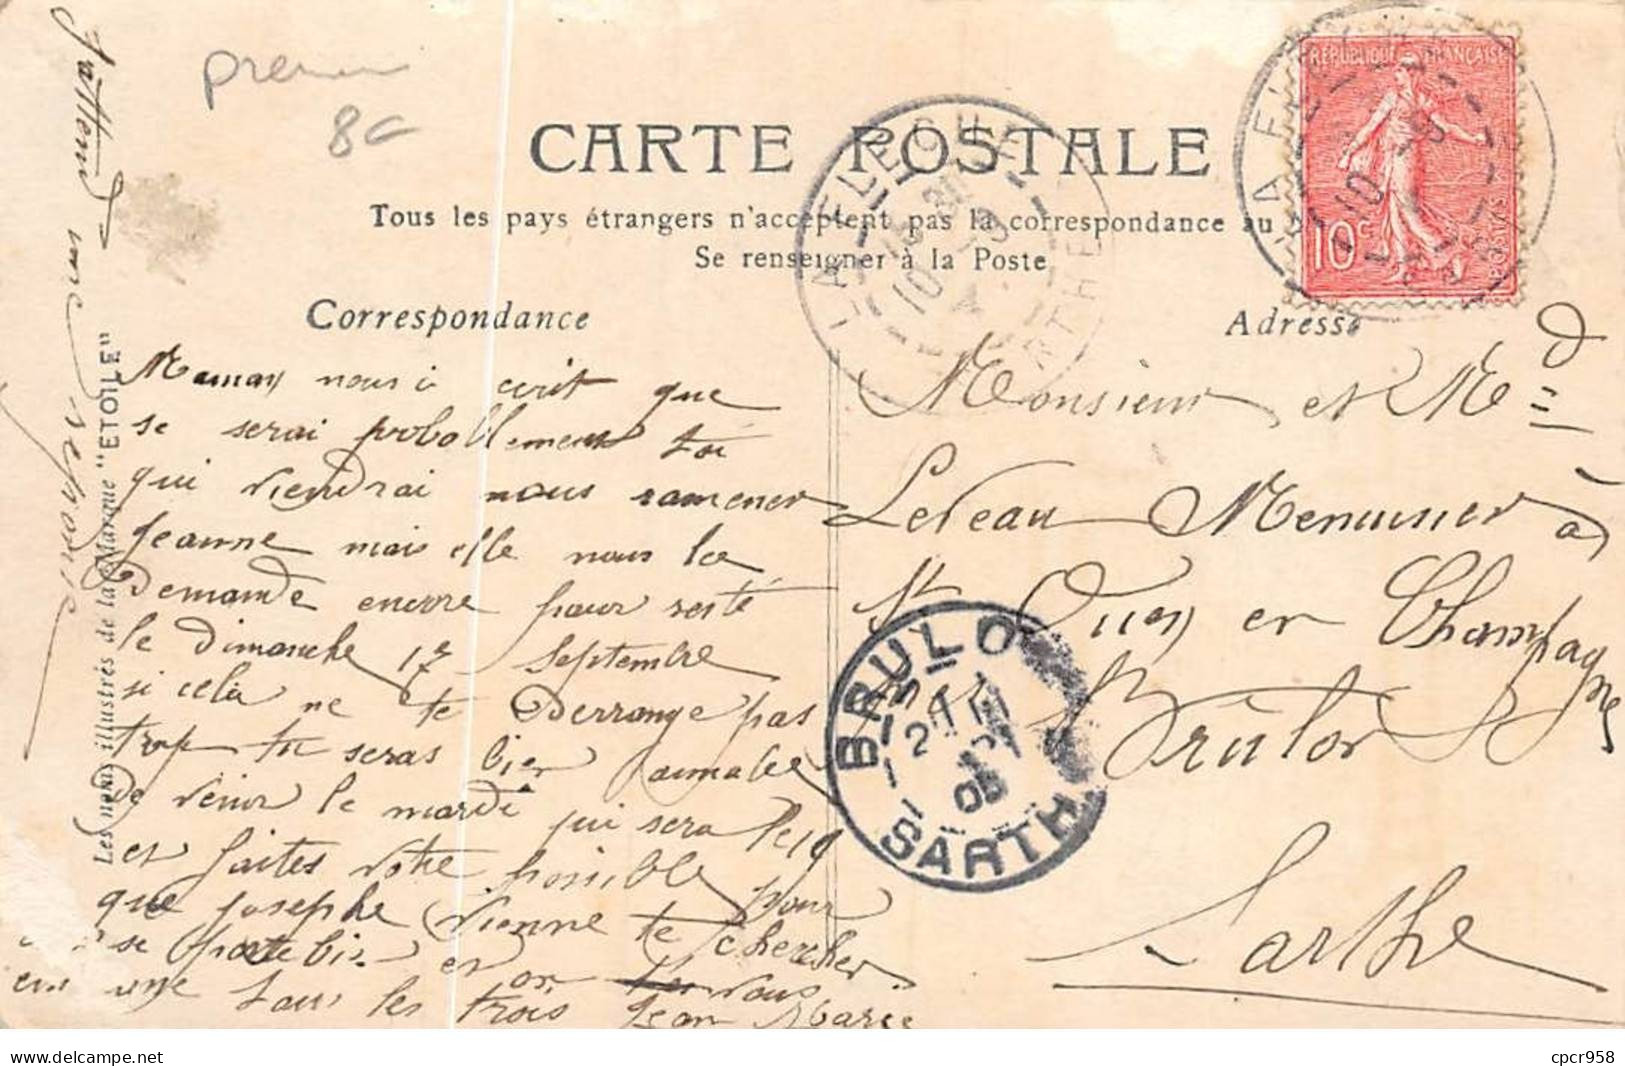 premier
8c
CARTE POSTALE
Tous les pays étrangers n'acceptent pas la correspondance au
Se renseigner à la Poste
Correspondance
Adresse
REPUBLIQUE FRANÇAISE
10c
POSTES
LA FLECHE
SARTHE
LA FLECHE
BRULO
SARTH
Les nous illustrés de la Marque "ETOILE"
J'attend une réponse
Maman nous à ecrit que
se serai probabllement toi
qui viendrai nous ramener
Jeanne mais elle nous la
Demande encore pour resté
le Dimanche 17 Septembre
si cela ne te Derrange pas
trop tu seras bien aimable
De venir le mardi qui sera le 19
et faites votre possible pour
que Josephe vienne te chercher
se porte bien et on vous
tous les trois Jean Marie
Monsieur et Md
Leveau Menuisier à
St Ouen en Champagne
Brûlon
Sarthe
cpcr958